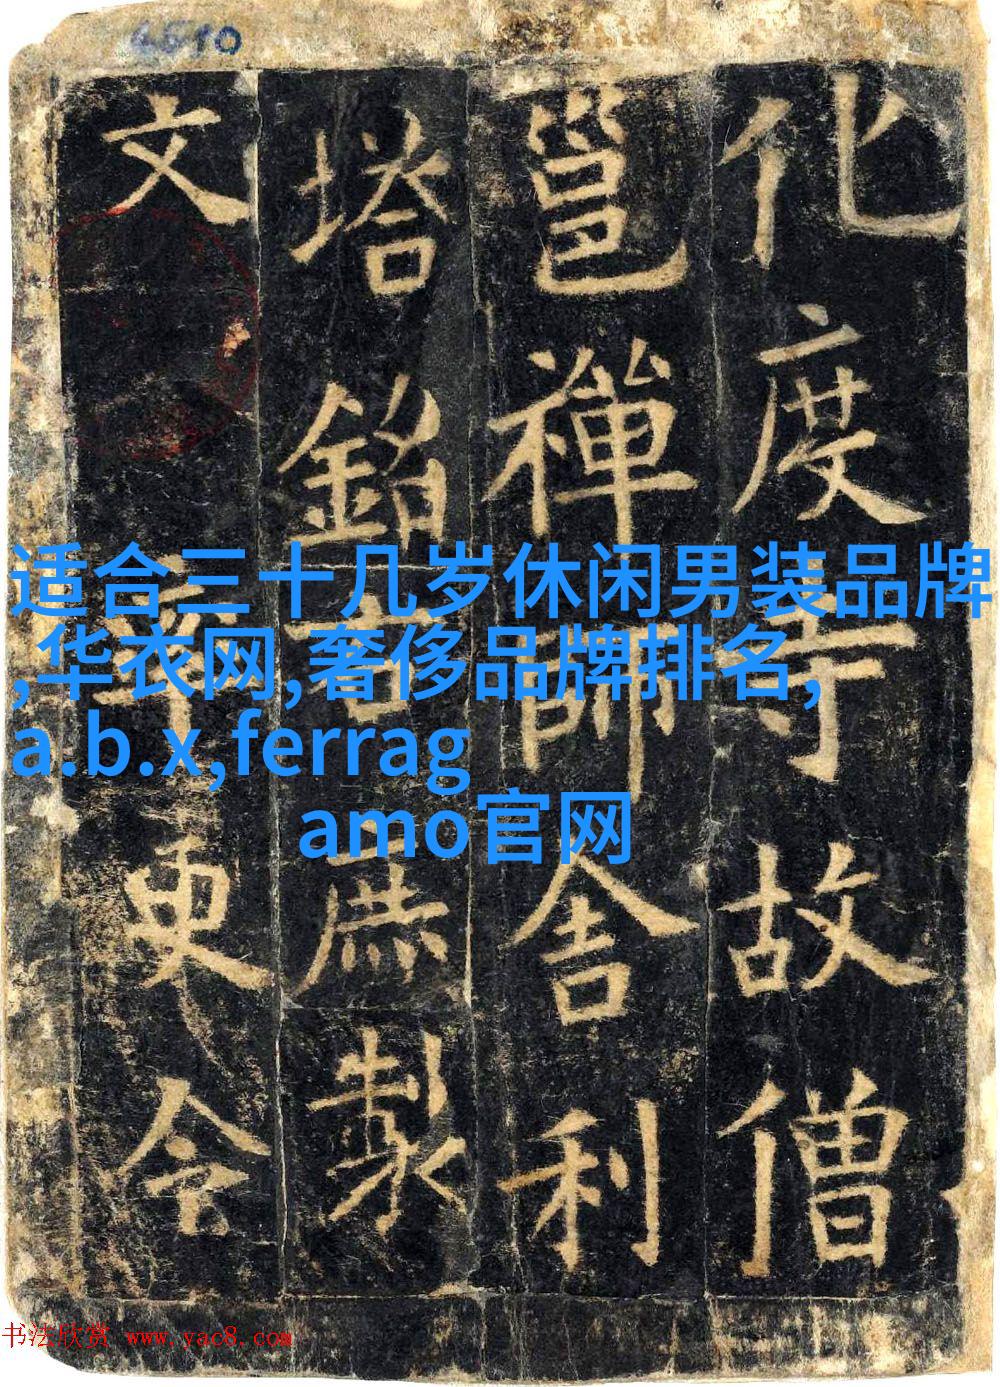 适合三十几岁休闲男装品牌
,华衣网,奢侈品牌排名,
a.b.x,ferrag
amo官网
化度寺故僧
邕禪師舍利
塔銘右庶製
文率更令
书法欣赏 www.yac8.com